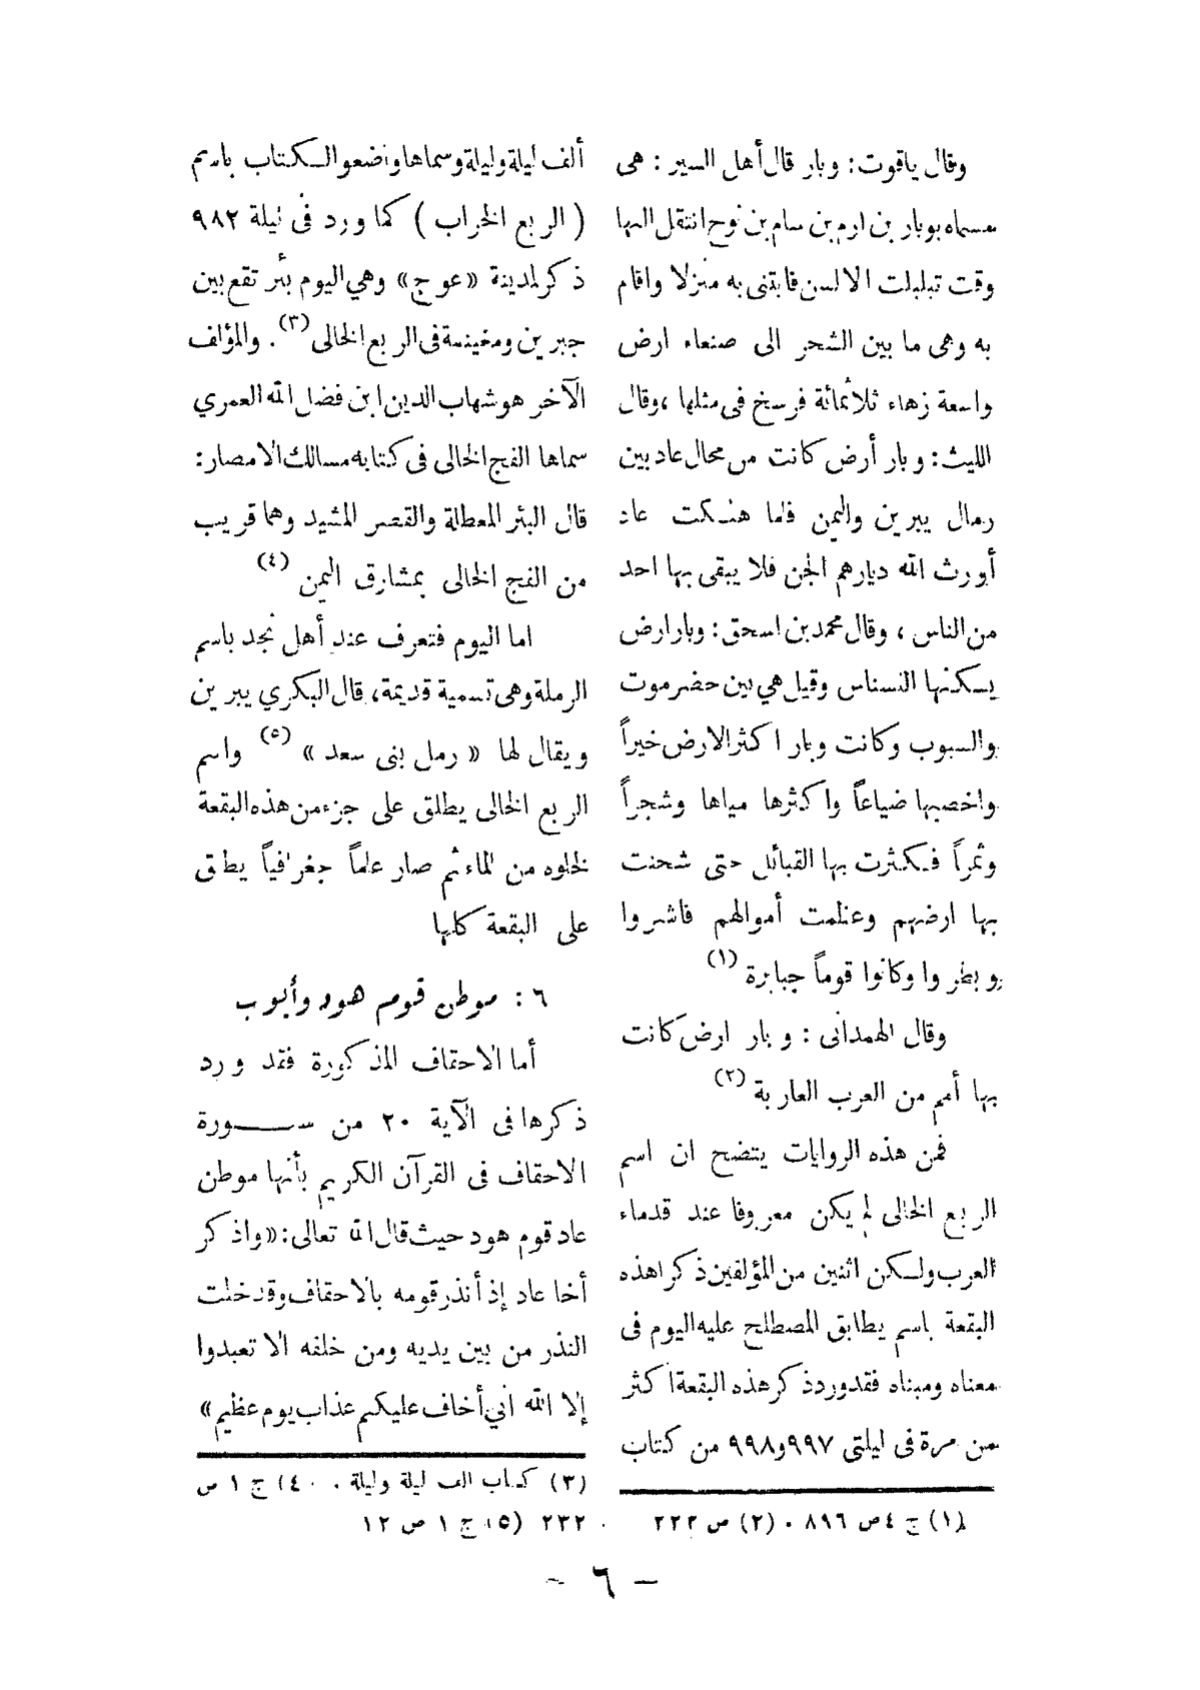 وقال ياقوت: وبار قال أهل السير : هى
مسماه بوبار بن ارم بن سام بن نوح انتقل اليها
وقت تبلبلت الالسن فابتنى به منزلا واقام
به وهى ما بين الشحر الى صنعاء ارض
واسعة زهاء ثلاثمائة فرسخ فى مثلها ،وقال
الليث: وبار أرض كانت من محال عاد بين
رمال يبرين واليمن فلما هلكت عاد
أورث الله ديارهم الجن فلا يبقى بها احد
من الناس ، وقال محمد بن اسحق: وبار ارض
يسكنها النسناس وقيل هي بين حضرموت
والسبوب وكانت وبار اكثر الارض خيراً
واخصبها ضياعاً واكثرها مياها وشجراً
وثمراً فكثرت بها القبائل حتى شحنت
بها ارضهم وعظمت أموالهم فاشروا
وبطروا وكانوا قوماً جبابرة (١)
وقال الهمدانى : وبار ارض كانت
بها أمم من العرب العاربة (٢)
فمن هذه الروايات يتضح ان اسم
الربع الخالى لم يكن معروفا عند قدماء
العرب ولكن اثنين من المؤلفين ذكرا هذه
البقعة باسم يطابق المصطلح عليه اليوم فى
معناه ومبناه فقد ورد ذكر هذه البقعة اكثر
من مرة فى ليلتى ٩٩٧ و٩٩٨ من كتاب
(١) ج ٤ ص ٨٩٦ . (٢) ص ٢٢٣
ألف ليلة وليلة وسماها واضعو الكتاب باسم
( الربع الخراب ) كما ورد فى ليلة ٩٨٢
ذكر لمدينة «عوج» وهي اليوم بئر تقع بين
جبرين ومخينسة فى الربع الخالى (٣). والمؤلف
الآخر هو شهاب الدين ابن فضل الله العمري
سماها الفج الخالى فى كتابه مسالك الامصار:
قال البئر المعطلة والقصر المشيد وهما قريب
من الفج الخالى بمشارق اليمن (٤)
اما اليوم فتعرف عند أهل نجد باسم
الرملة وهى تسمية قديمة، قال البكري يبرين
ويقال لها « رمل بنى سعد » (٥) واسم
الربع الخالى يطلق على جزء من هذه البقعة
لخلوه من الماء ثم صار علماً جغرافياً يطلق
على البقعة كلها
٦ : موطن قوم هود وأيوب
أما الاحقاف المذكورة فقد ورد
ذكرها فى الآية ٢٠ من ســـورة
الاحقاف فى القرآن الكريم بأنها موطن
عاد قوم هود حيث قال الله تعالى: «واذكر
أخا عاد إذ أنذر قومه بالاحقاف وقد خلت
النذر من بين يديه ومن خلفه الا تعبدوا
إلا الله اني أخاف عليكم عذاب يوم عظيم»
(٣) كتاب الف ليلة وليلة . (٤) ج ١ ص
٢٣٢ (٥) ج ١ ص ١٢
- ٦ -